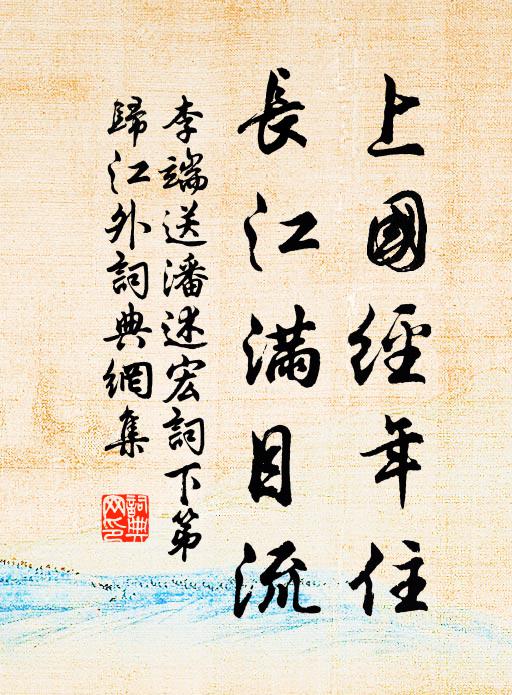 上國經年住
長江滿目流
李端送潘述宏詞下第
歸江外詞典網集
詞典
网印